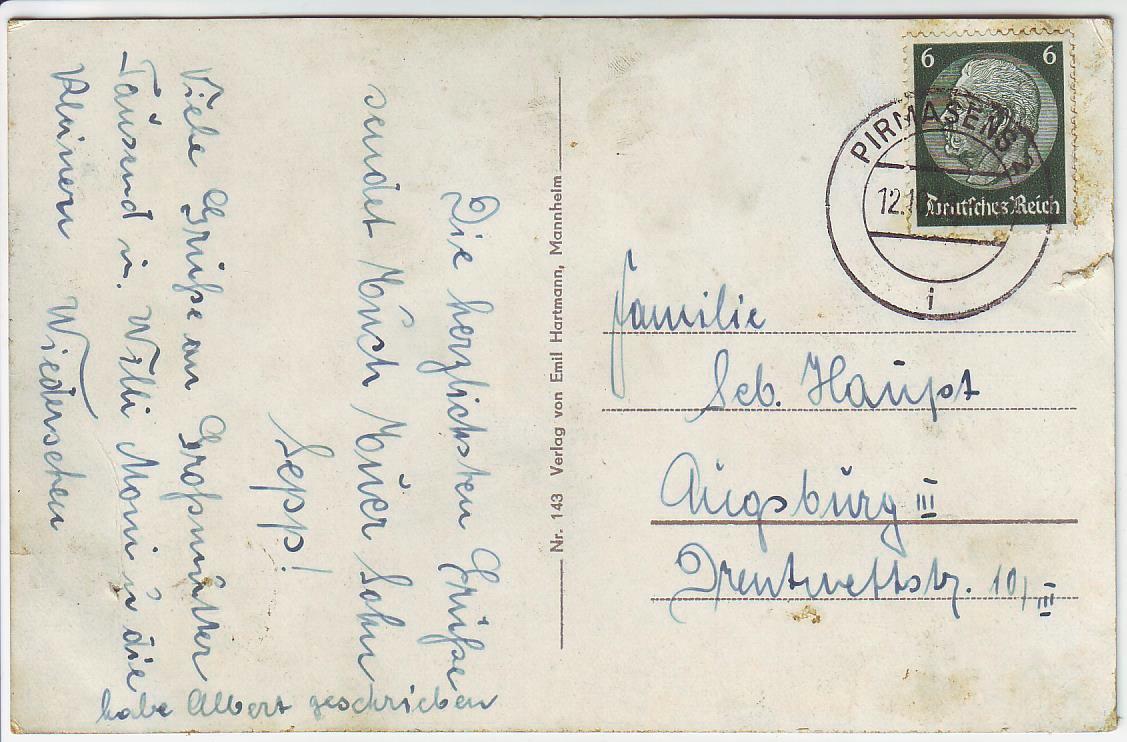 Die herzlichsten Grüße
sendet Euch Euer Sohn
Sepp!
Viele Grüße an Großmutter
Tausend u. Willi Moni u die
kleinen Wiedersehen
habe Albert geschrieben
Nr. 143 Verlag von Emil Hartmann, Mannheim
6 6
Deutsches Reich
PIRMASENS
12.1
i
Familie
Seb. Haupt
Augsburg III
Drentwettstr. 10/III